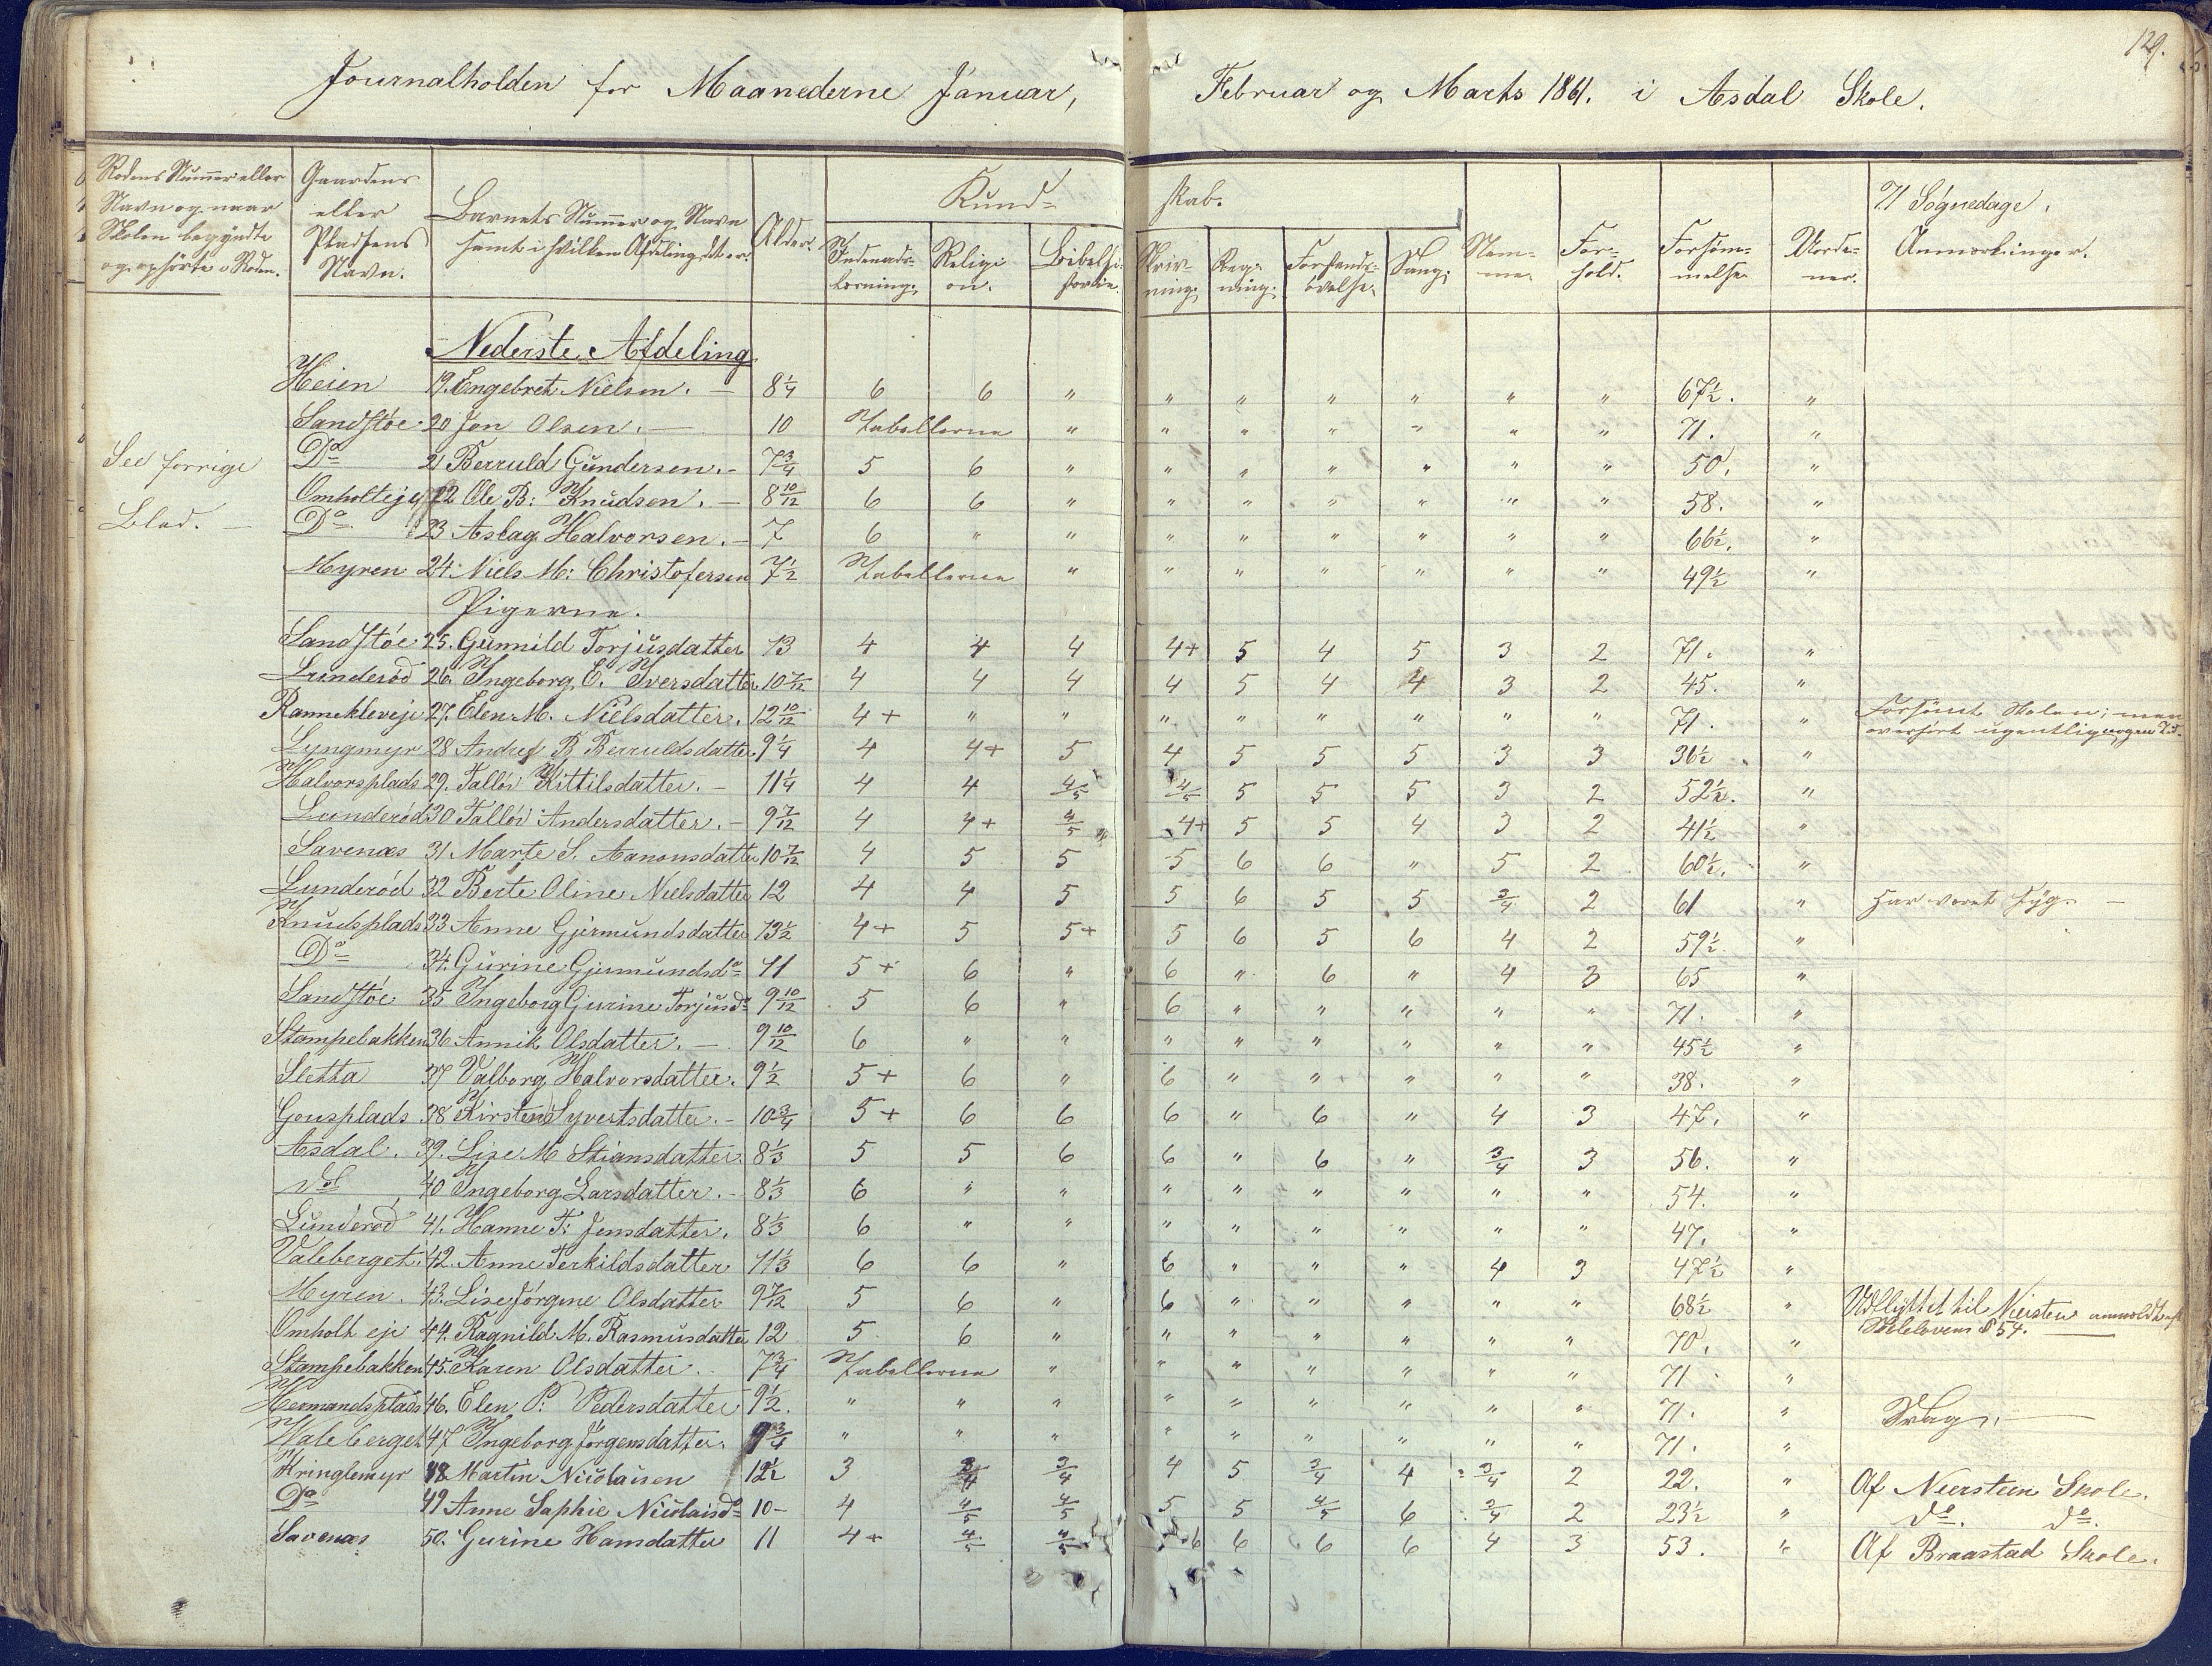 129.
Journalholden for Maanederne Januar, Februar og Marts 1861. i Asdal Skole.
Rodens Nummer eller Navn og naar Skolen begyndte og ophörte i Roden. Gaardens eller Pladsens Navn. Barnets Nummer og Navn samt i hvilken Afdeling det er. Alder. Kund- skab. 71 Søgnedage.
Indenads- læsning. Religi on. Bibelhi- storie. Skriv- ning. Reg- ning. Forstands- övelse. Sang. Nem- me. For- hold. Forsöm- melse Uorde- ner. Anmærkninger.
Nederste Afdeling
Heien 19. Engebret Nielsen. — 8 1/4 6 6 " " " " " " " 67 1/2. "
Sandstøe 20 Jon Olsen. — 10 Tabellerne " " " " " " " 71. "
Do 21 Berruld Gundersen. - 7 3/4 5 6 " " " " " " " 50. "
See forrige
Omholteje 22 Ole B: Knudsen. — 8 10/12 6 6 " " " " " " " 58. "
Blad. —
Do 23 Aslag Halvorsen. - 7 6 " " " " " " " " 66 1/2. "
Myren 24. Niels M: Christofersen 7 1/2 Tabellerne " " " " " " " 49 1/2 "
Pigerne.
Sandstøe 25. Gunnild Torjusdatter 13 4 4 4 4+ 5 4 5 3 2 71. "
Lunderöd 26. Ingeborg E. Iversdatter 10 7/12 4 4 4 4 5 4 4 3 2 45. "
Rannekleveje 27. Elen M. Nielsdatter. 12 10/12 4+ " " " " " " " " 71. " Forsömt Skolen; men overhört ugentlig
Lyngmyr 28 B Berruldsdatter. 9 1/4 4 4+ 5 4 5 5 5 3 3 36 1/2 "
Halvorsplads 29. Tallöv Kittilsdatter. - 11 1/4 4 4 4/5 4/5 5 5 5 3 2 52 1/2. "
Lunderöd 30 Tallöv Andersdatter. - 9 7/12 4 4+ 4/5 4+ 5 5 4 3 2 41 1/2 "
Savenæs 31. Marte S. Aanonsdatter 10 7/12 4 5 5 5 6 6 " 5 2 60 1/2. "
Lunderöd 32 Berte Oline Nielsdatter 12 4 4 5 5 6 5 5 3/4 2 61 " Har været syg. —
Knudsplads 33 Anne Gjermundsdatter 13 1/2 4+ 5 5+ 5 6 5 6 4 2 59 1/2. "
Do 34. Gurine Gjermundsdo 11 5+ 6 " 6 " 6 " 4 3 65 "
Sandstøe 35 Ingeborg Gurine Torjusdo 9 10/12 5 6 " 6 " " " " " 71. "
Stampebakken 36 Annik Olsdatter. — 9 10/12 6 " " " " " " " " 45 1/2 "
Sletta 37 Valborg Halvorsdatter. 9 1/2 5+ 6 " 6 " " " " " 38. "
Gousplads 38 Kirsten Syvertsdatter. - 10 3/4 5+ 6 6 6 " 6 " 4 3 47. "
Asdal. 39. Lise M Stiansdatter. 8 1/3 5 5 6 6 " 6 " 3/4 3 56. "
do 40 Ingeborg Larsdatter. - 8 1/3 6 " " " " " " " " 54. "
Lunderöd 41. Hanne T: Jensdatter. 8 1/3 6 " " " " " " " " 47. "
Valeberget. 42. Anne Terkildsdatter 11 1/3 6 6 " 6 " " " 4 3 47 1/2 "
Myren. 43. Lise Jörgine Olsdatter 9 7/12 5 6 " 6 " " " " " 68 1/2 " Udflyttet til Niersten anmeldt Skoleloven § 54.
Omholt eje 44. Ragnild M. Rasmusdatter 12 5. 6 " " " " " " " 70. "
Stampebakken 45. Karen Olsdatter. 7 3/4 Tabellerne " " " " " " " 71 "
Hermandsplads 46. Elen P: Pedersdatter 9 1/2. " " " " " " " " " 71. " Svag. —
Valeberget 47 Ingeborg Jörgensdatter. 9 3/4 " " " " " " " " " 71. "
Kringlemyr 48 Martin Nicolaisen 12 1/2 3 3/4 3/4 4 5 3/4 4 3/4 2 22. " Af Niersteen Skole.
Do 49 Anne Saphie Nicolaisdo 10- 4 4/5 4/5 5 5 4/5 6 3/4 2 23 1/2 " do. do.
Savenæs 50. Gurine Hansdatter 11 4+ 4/5 4/5 6 6 6 6 4 3 53. " Af Braastad Skole.